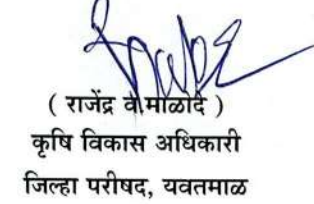 ( राजेंद्र वे. माळोदे )
कृषि विकास अधिकारी
जिल्हा परीषद, यवतमाळ